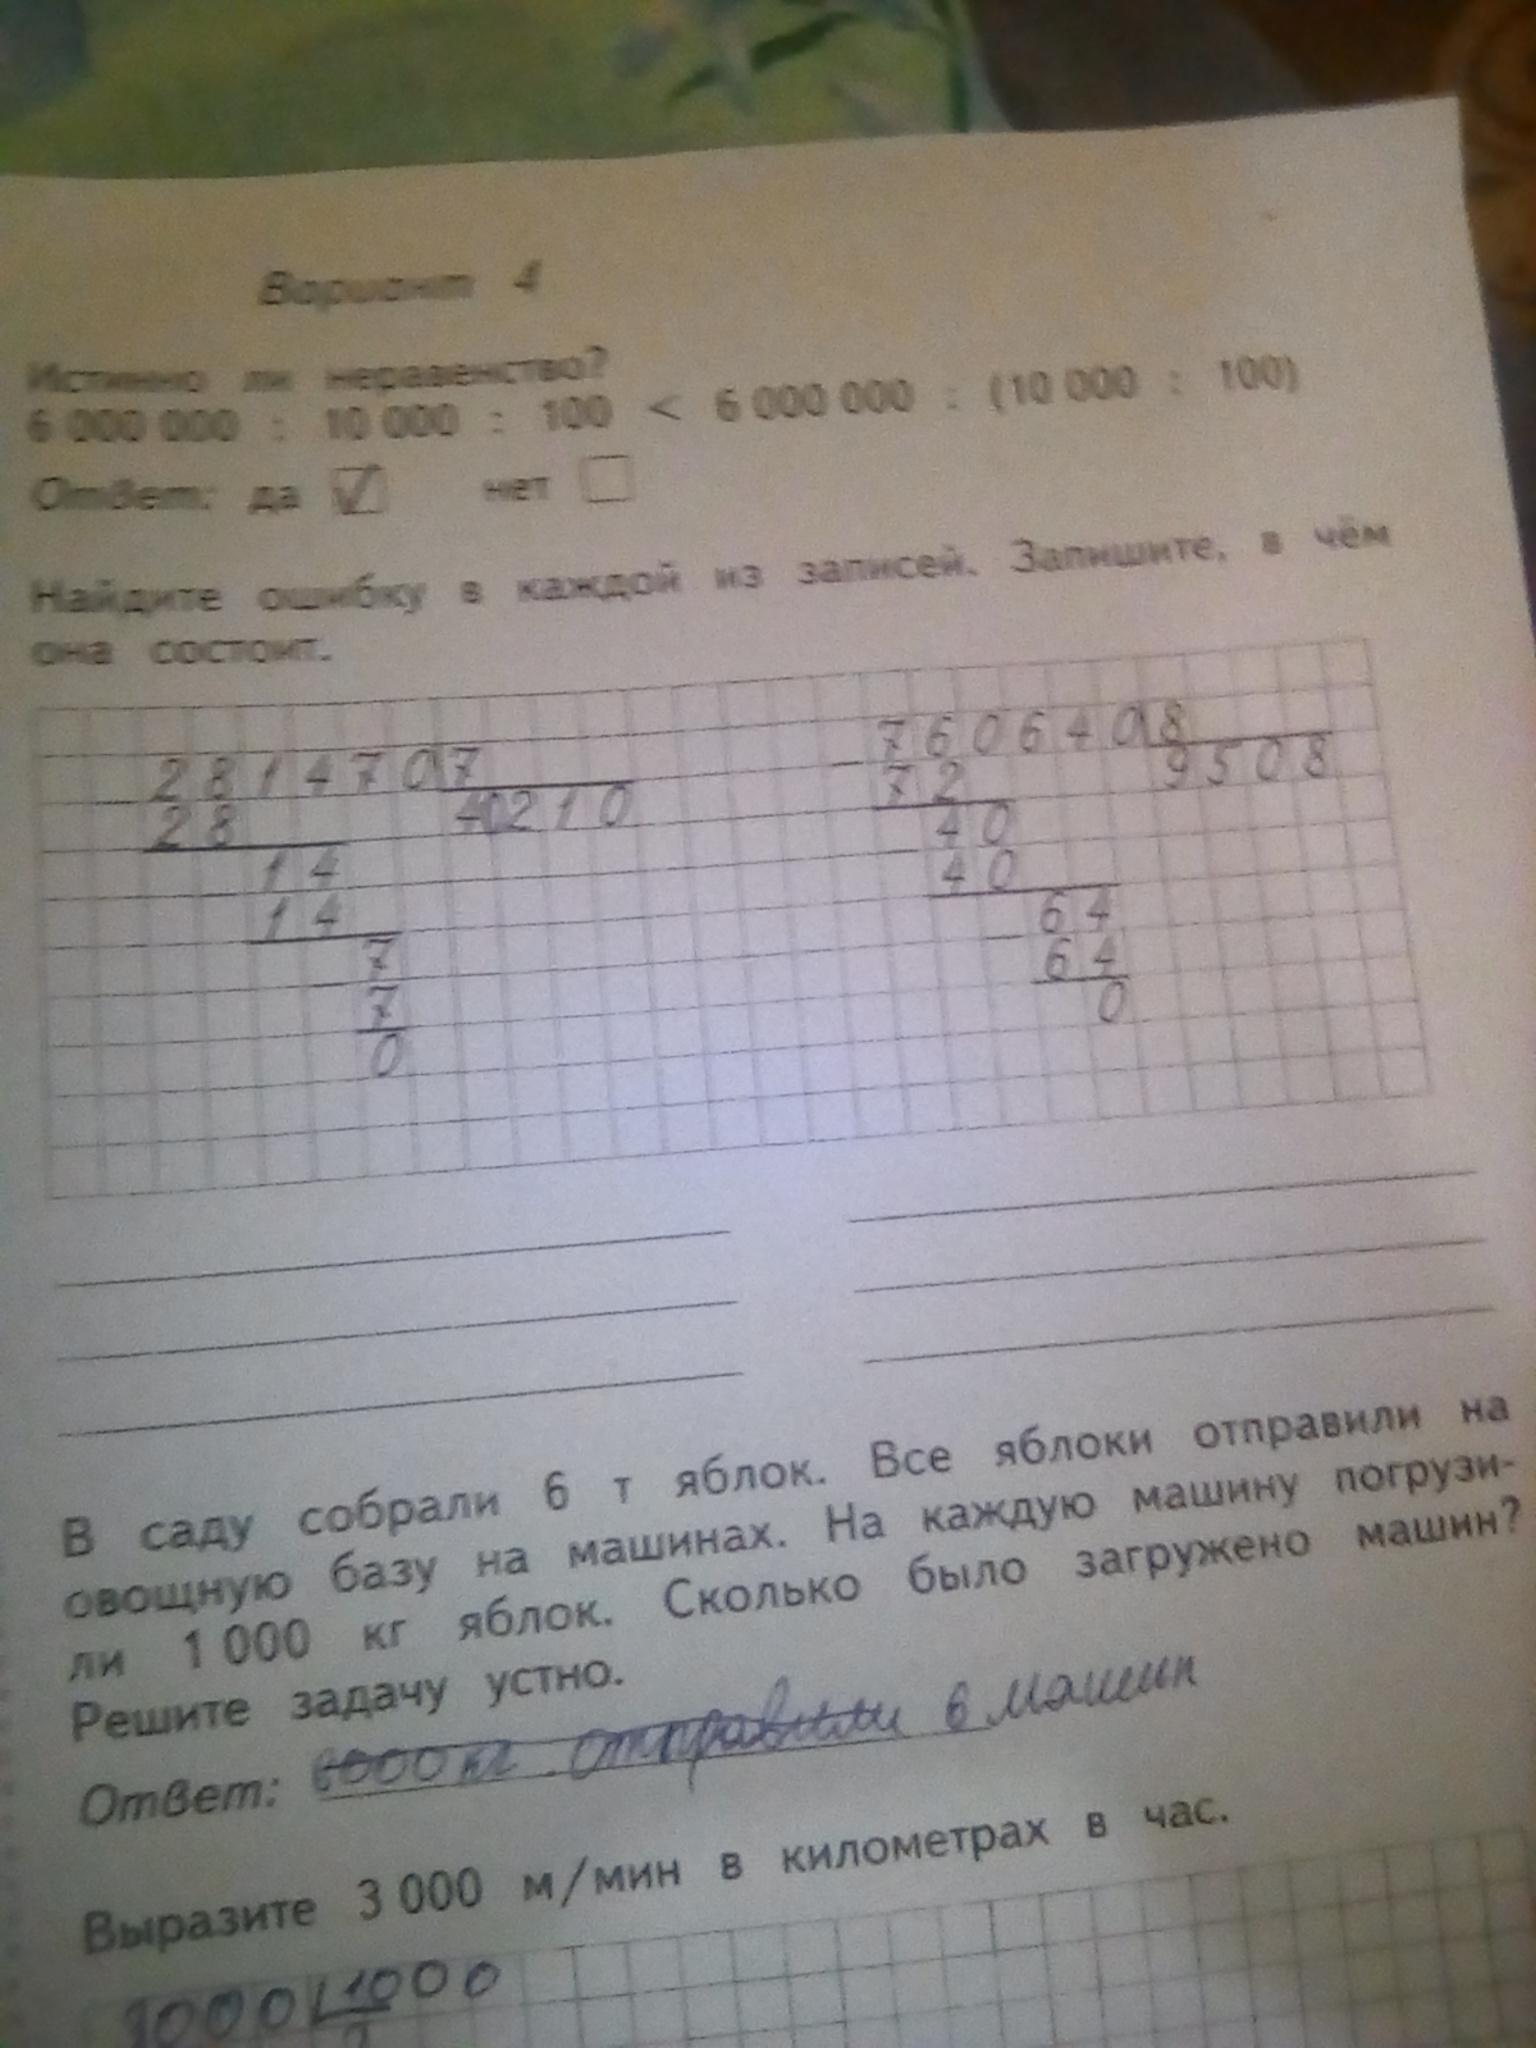 Вариант 4
Истинно ли неравенство?
6 000 000 : 10 000 : 100 < 6 000 000 : (10 000 : 100)
Ответ: да ✓ нет
Найдите ошибку в каждой из записей. Запишите, в чём
она состоит.
281470 7
28 40210
14
14
7
7
0
760640 8
72 9508
40
40
64
64
0
В саду собрали 6 т яблок. Все яблоки отправили на
овощную базу на машинах. На каждую машину погрузи-
ли 1 000 кг яблок. Сколько было загружено машин?
Решите задачу устно.
Ответ: 6000 кг. отправили 6 машин
Выразите 3 000 м/мин в километрах в час.
3000 1000